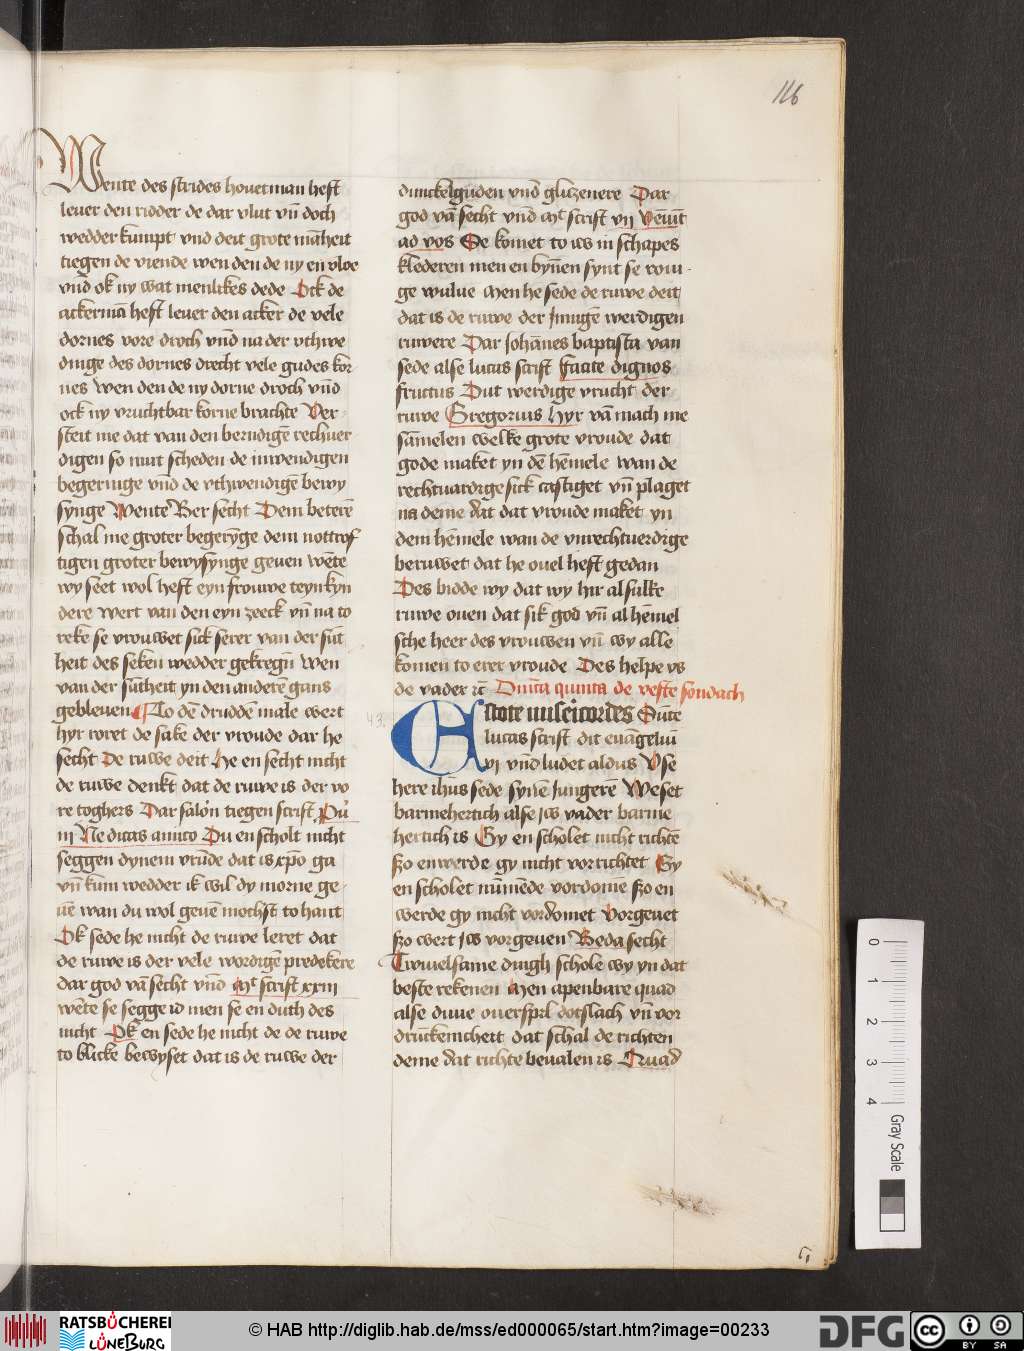 116
Wente des strides houetman heft
leuer den ridder de dar vlut vn̄ doch
wedder kumpt vnd deit grote māheit
tiegen de viende wen den de ny en vloe
vn̄d ok ny wat menlikes dede Ock de
ackermā heft leuer den acker de vele
dornes vore droch vn̄d na der vthwe
dinge des dornes drecht vele gudes kor
nes wen den de ny dorne droch vn̄d
ock ny vruchtbar korne brachte Ver
steit me dat van den berndigē rechuer
digen so mut scheden de inwendigen
begeringe vn̄d de vthwendigē bewy
synge Wente Ber secht Dem beterē
schal me groter begerÿge dem nottrof
tigen groter bewysynge geuen wēte
wy seet wol heft eyn frouwe teyn kyn
dere wert van den eyn zeeck vn̄ na to
reke se vrouwet sick serer van der sūt
heit des seken wedder gekregn̄ wen
van der sūtheit yn den anderē gans
gebleuen To dē druddē male wert
hyr roret de sake der vroude dar he
secht De ruwe deit He en secht nicht
de ruwe denkt dat de ruwe is der vo
re toghers Dar salōn tiegen scrift Pū
iii Ne dicas amico Du en scholt nicht
seggen dynem vrūde dat is xp̄o ga
vn̄ kum wedder ik wil dy morne ge
uē wan du wol geuē mochst to hant
Ok sede he nicht de ruwe leret dat
de ruwe is der vele wordige predekēre
dar god vā secht vn̄d Mt scrift xxiii
wēte se segge id men se en duth des
nicht Ok en sede he nicht de de ruwe
to blicke bewyset dat is de ruwe der
dunckelguden vn̄d glitzenere Dar
god vā secht vn̄d Mt scrift vii Veniūt
ad vos Se komet to iw in schapes
klederen men en bynnē synt se rouu
ge wulue Men he sede de ruwe deit
dat is de ruwe der Junngē werdigen
ruwere Dar Johānes baptista van
sede alse lucas scrift Facite dignos
fructus Dut werdige vrucht der
ruwe Gregorius Hyr vā mach me
sāmelen welke grote vroude dat
gode maket yn dē hēmele wan de
rechtuardige sick castiget vn̄ plaget
na deme dat dat vroude maket yn
dem hēmele wan de vnrechtuerdige
beruwet dat he ouel heft gedan
Des bidde wy dat wy hir al sulke
ruwe ouen dat sik god vn̄ al hēmel
sche heer des vrouwen vn̄ wy alle
komen to erer vroude Des helpe vs
de vader ꝛc̄ Dn̄ica quinta de veste sondach
43.
Estote misericordes Sūte
lucas scrift dit euāgeliū
vi vn̄d ludet aldus Vse
here ih̄us sede synē Jungerē Weset
barmehertich alse Jw vader barme
hertich is Gy en scholet nicht richtē
szo en werde gy nicht vorrichtet Gy
en scholet nūmēde vordomē szo en
werde gy nicht vordomet Vorgeuet
szo wert Jw vorgeuen Beda secht
Twiuelsame dingh schole wy yn dat
beste rekenen Men apenbare quad
alse duue ouersprl dotslach vn̄ vor
drūckenicheit dat schal de richten
deme dat richte beualen is Truad
0 1 2 3 4 Gray Scale
RATSBÜCHEREI
LÜNEBURG
© HAB http://diglib.hab.de/mss/ed000065/start.htm?image=00233
DFG
cc BY SA